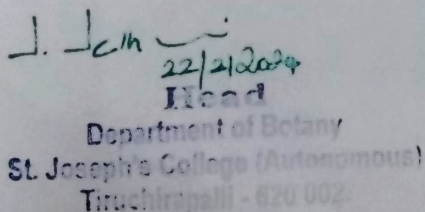 22/2/2024
Head
Department of Botany
St. Joseph's College (Autonomous)
Tiruchirapalli - 620 002.